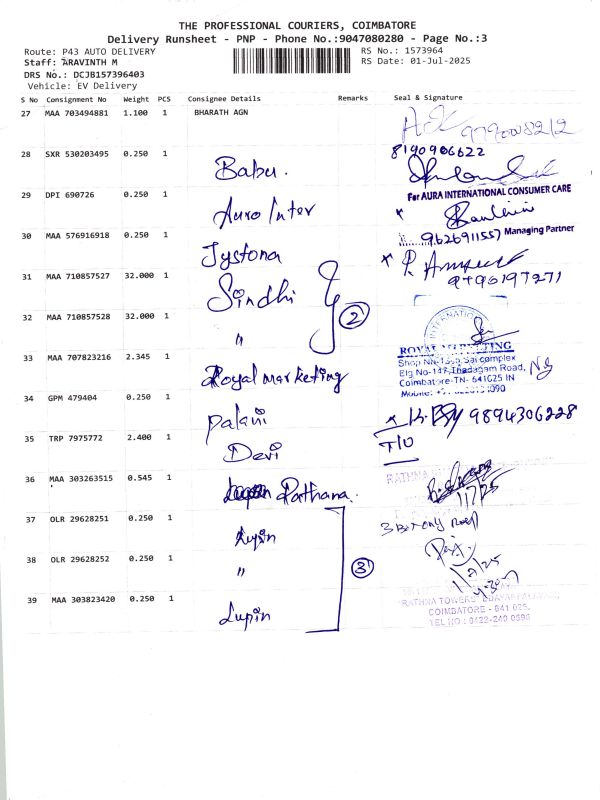 THE PROFESSIONAL COURIERS, COIMBATORE
Delivery Runsheet - PNP - Phone No.:9047080280 - Page No.:3
Route: P43 AUTO DELIVERY
RS No.: 1573964
Staff: ARAVINTH M
RS Date: 01-Jul-2025
DRS No.: DCJB157396403
Vehicle: EV Delivery
S No Consignment No Weight PCS Consignee Details Remarks Seal & Signature
27 MAA 703494881 1.100 1 BHARATH AGN
8190906622
28 SXR 530203495 0.250 1 Babu.
For AURA INTERNATIONAL CONSUMER CARE
29 DPI 690726 0.250 1 Auro Inter
9626911557 Managing Partner
30 MAA 576916918 0.250 1 Jystona
31 MAA 710857527 32.000 1 Sindhi
2
32 MAA 710857528 32.000 1 "
ROYAL MARKETING
33 MAA 707823216 2.345 1 Royal marketing
Thadagam Road,
Coimbatore-TN- 641025 IN
34 GPM 479404 0.250 1 Palani
9894306228
35 TRP 7975772 2.400 1 Devi
T/O
36 MAA 303263515 0.545 1 Rathana
37 OLR 29628251 0.250 1 Lupin
38 OLR 29628252 0.250 1 "
3
39 MAA 303823420 0.250 1 Lupin
RATHNA TOWERS
COIMBATORE - 641 025.
TEL NO : 0422-240 0896